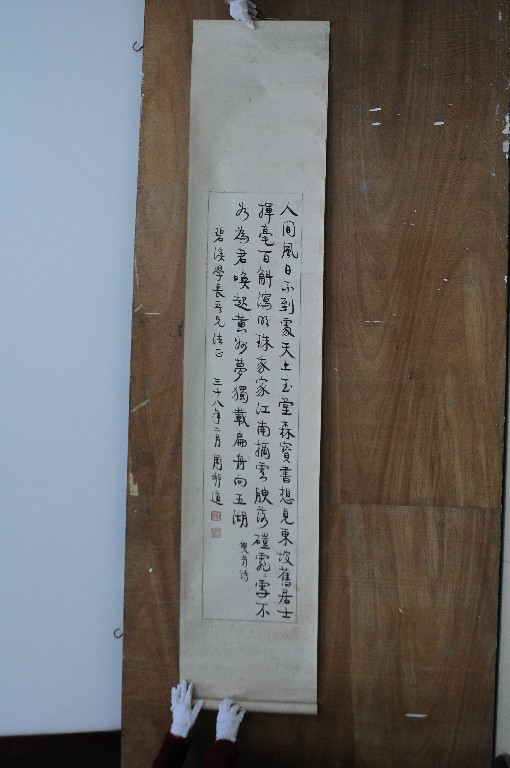 人間風日不到處天上玉堂森寶書想見東坡舊居士
揮毫百斛瀉明珠我家江南摘雲腴落磑霏〻雪不
如為君喚起黃州夢獨載扁舟向五湖 雙井詩
碧溪學長兄法正 三十八年二月 周邦道